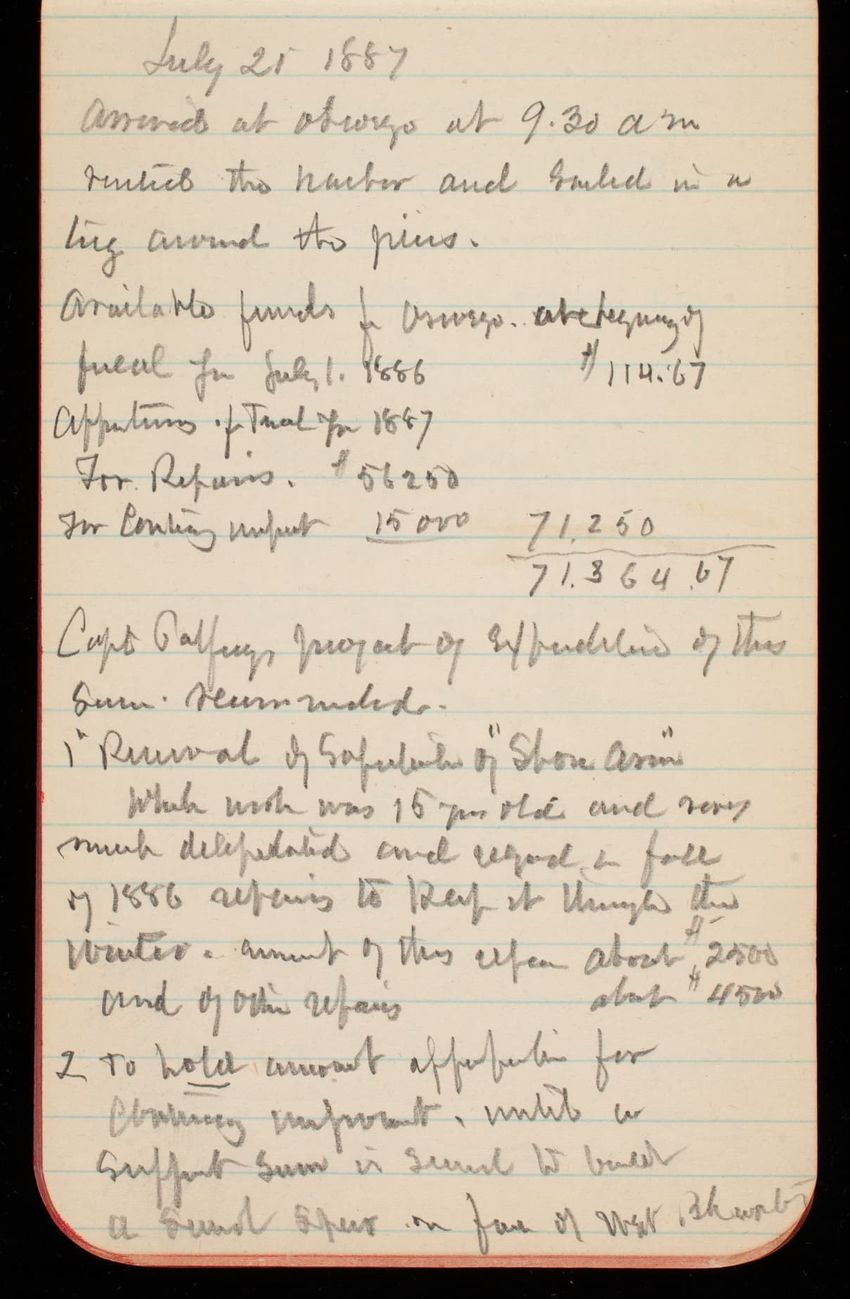 July 25 1887
Arrived at Oswego at 9.30 a m
visited the harbor and sailed in a
tug around the piers.
Available funds for Oswego. at beginning of
fiscal yr July 1. 1886 $114.67
for fiscal yr 1887
For Repairs. $56250
For Conting 15000 71,250
71.364.67
Capt Palfreys project of Expenditure of this
Sum. recommended.
1" Renewal of of "Shore Arm"
Which work was 15 yrs old and very
much and in fall
of 1886 repairs to keep it through the
Winter. amount of this about $2500
and of other repairs about $4500
2 To hold amount for
until a
Sum is to build
a Spur on face of West